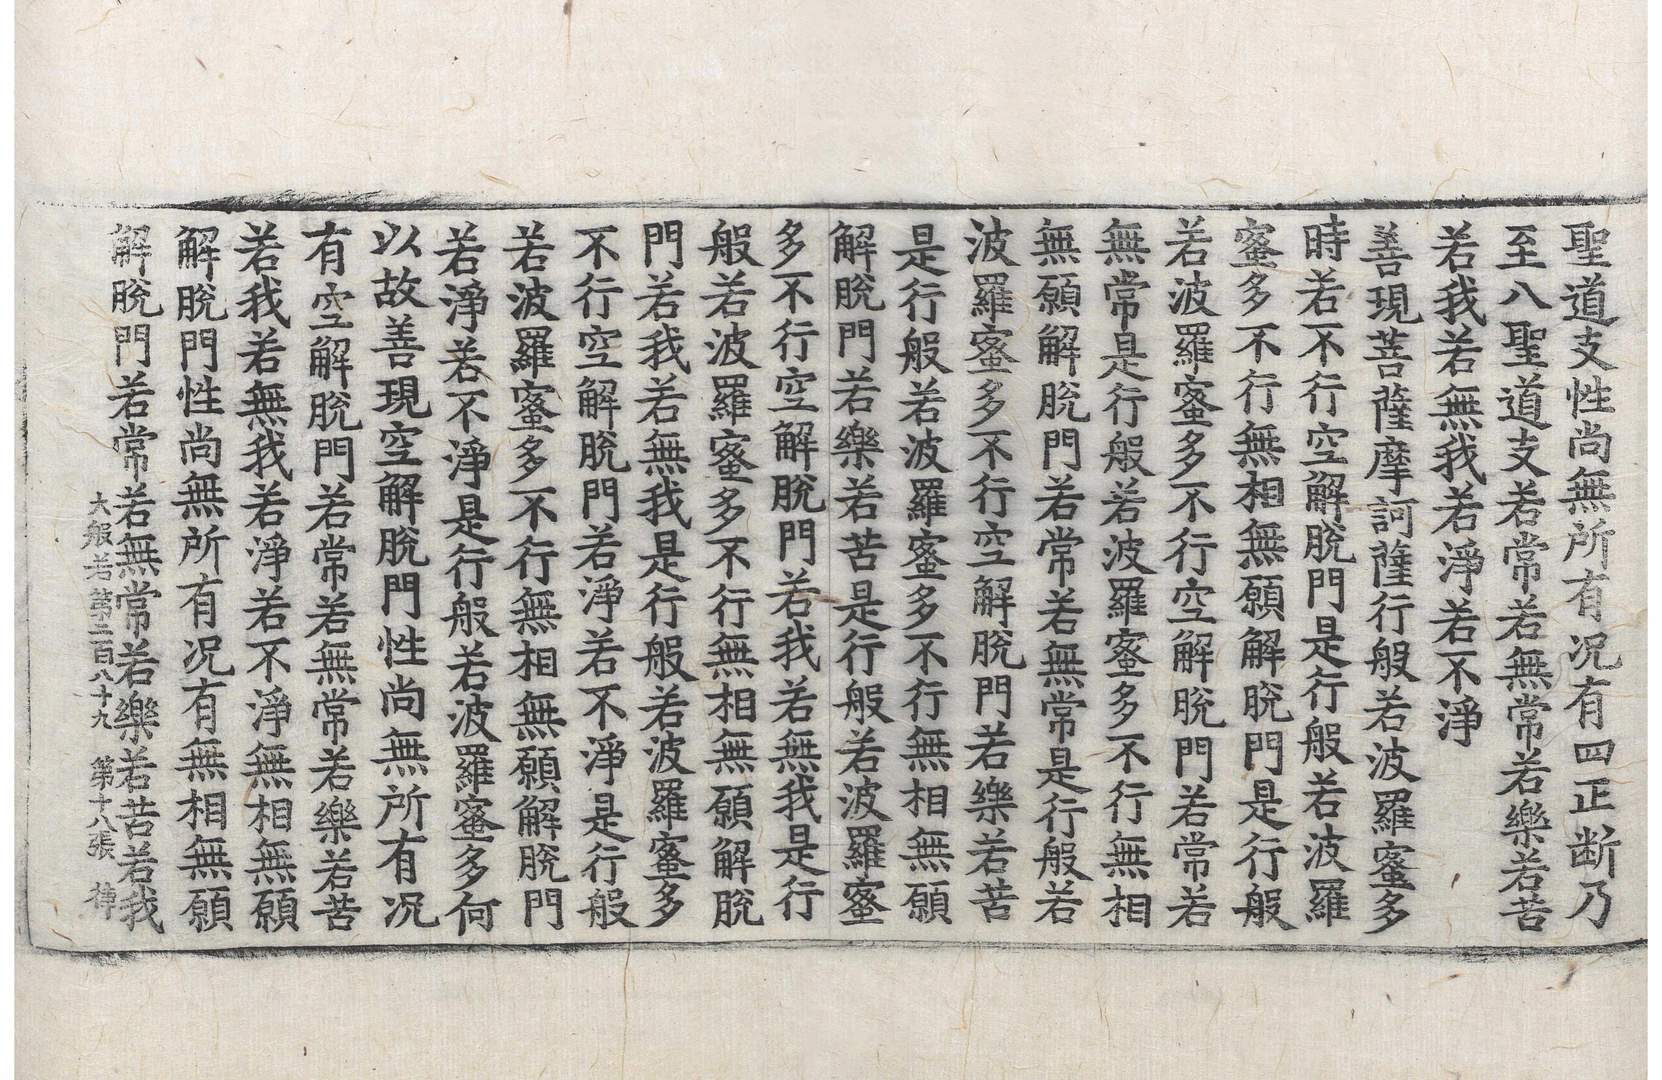 聖道支性尚無所有況有四正断乃
至八聖道支若常若無常若樂若苦
若我若無我若淨若不淨
善現菩薩摩訶薩行般若波羅蜜多
時若不行空解脫門是行般若波羅
蜜多不行無相無願解脫門是行般
若波羅蜜多不行空解脫門若常若
無常是行般若波羅蜜多不行無相
無願解脫門若常若無常是行般若
波羅蜜多不行空解脫門若樂若苦
是行般若波羅蜜多不行無相無願
解脫門若樂若苦是行般若波羅蜜
多不行空解脫門若我若無我是行
般若波羅蜜多不行無相無願解脫
門若我若無我是行般若波羅蜜多
不行空解脫門若淨若不淨是行般
若波羅蜜多不行無相無願解脫門
若淨若不淨是行般若波羅蜜多何
以故善現空解脫門性尚無所有况
有空解脫門若常若無常若樂若苦
若我若無我若淨若不淨無相無願
解脫門性尚無所有况有無相無願
解脫門若常若無常若樂若苦若我
大般若第二百八十九 第十八張